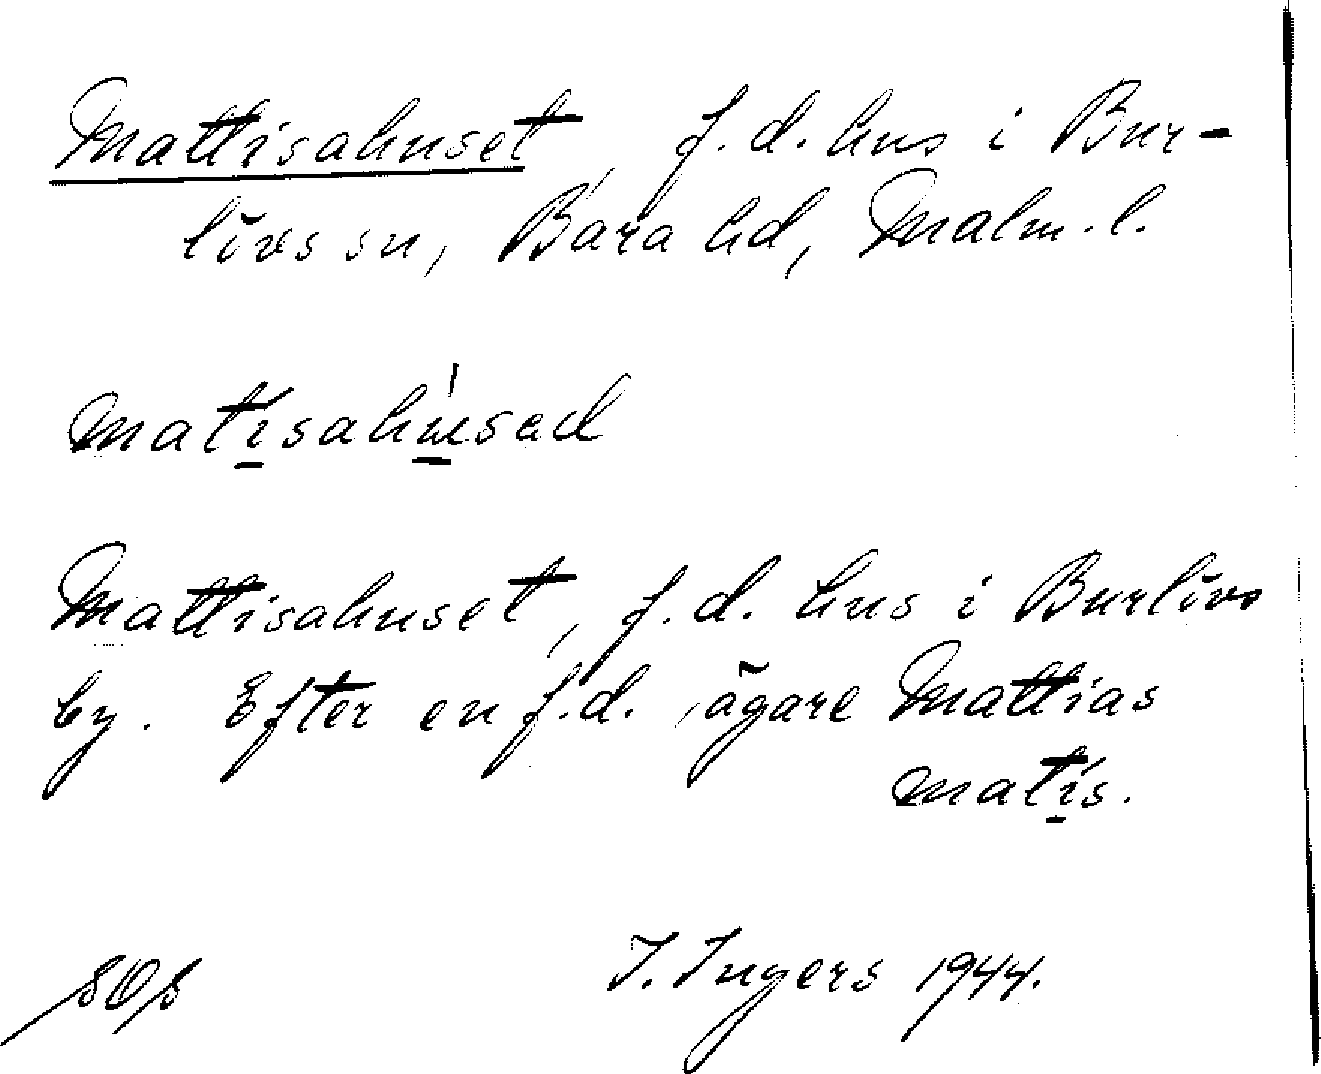 Mattisahuset, f.d. hus i Bur-
lövs sn, Bara hd, Malm. l.
matisahusad
Mattisahuset, f.d. hus i Burlövs
by. Efter en f.d. ägare Mattias
matis.
I. Ingers 1944.